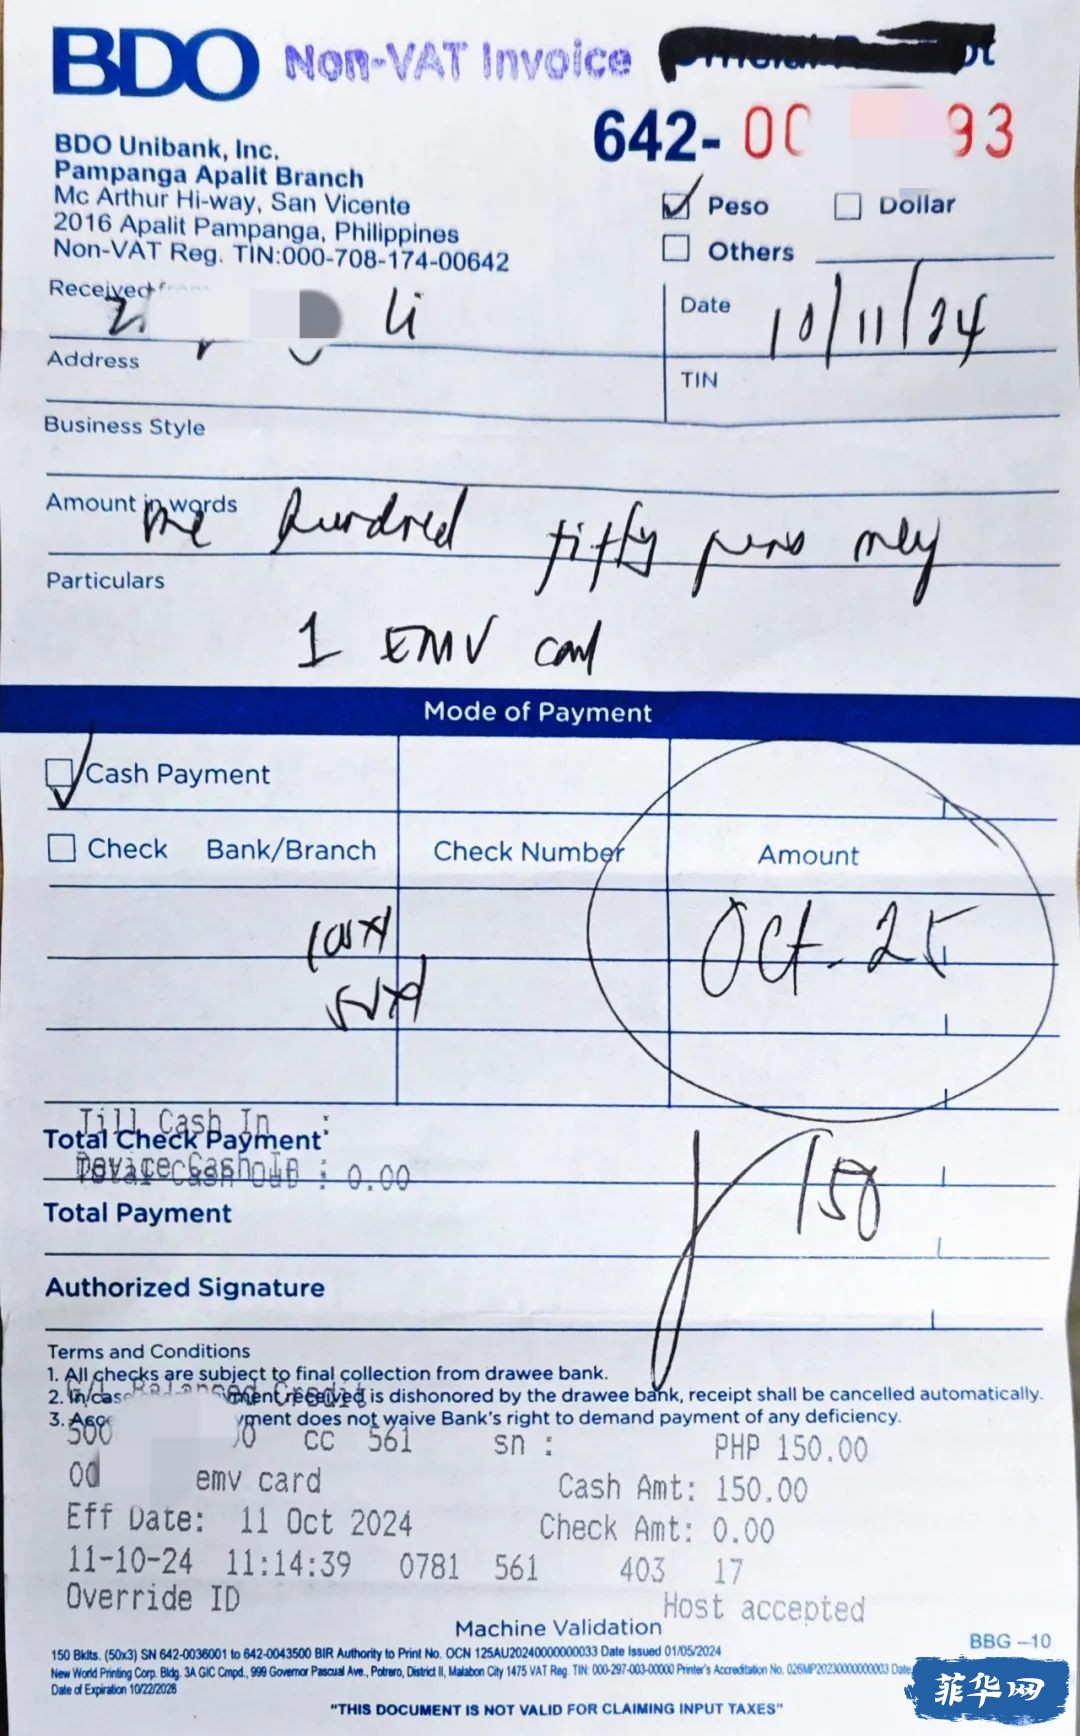 BDO Non-VAT Invoice
642- 00 93
BDO Unibank, Inc.
Pampanga Apalit Branch
Mc Arthur Hi-way, San Vicente
2016 Apalit Pampanga, Philippines
Non-VAT Reg. TIN:000-708-174-00642
Peso Dollar
Others
Received from
li
Date 10/11/24
Address
TIN
Business Style
Amount in words one hundred fifty pesos only
Particulars
1 EMV card
Mode of Payment
Cash Payment
Check Bank/Branch Check Number Amount
Oct. 25
Till Cash In :
Total Check Payment
: 0.00
150
Total Payment
Authorized Signature
Terms and Conditions
1. All checks are subject to final collection from drawee bank.
2. In case payment received is dishonored by the drawee bank, receipt shall be cancelled automatically.
3. yment does not waive Bank's right to demand payment of any deficiency.
500 0 cc 561 sn : PHP 150.00
00 emv card Cash Amt: 150.00
Eff Date: 11 Oct 2024 Check Amt: 0.00
11-10-24 11:14:39 0781 561 403 17
Override ID Host accepted
Machine Validation
BBG –10
150 Bklts. (50x3) SN 642-0036001 to 642-0043500 BIR Authority to Print No. OCN 125AU20240000000033 Date Issued 01/05/2024
New World Printing Corp. Bldg. 3A GIC Cmpd., 999 Governor Pascual Ave., Potrero, District II, Malabon City 1475 VAT Reg. TIN: 000-297-003-00000 Printer's Accreditation No. 026MP20230000000003 Date
Date of Expiration 10/22/2028
"THIS DOCUMENT IS NOT VALID FOR CLAIMING INPUT TAXES"
菲华网